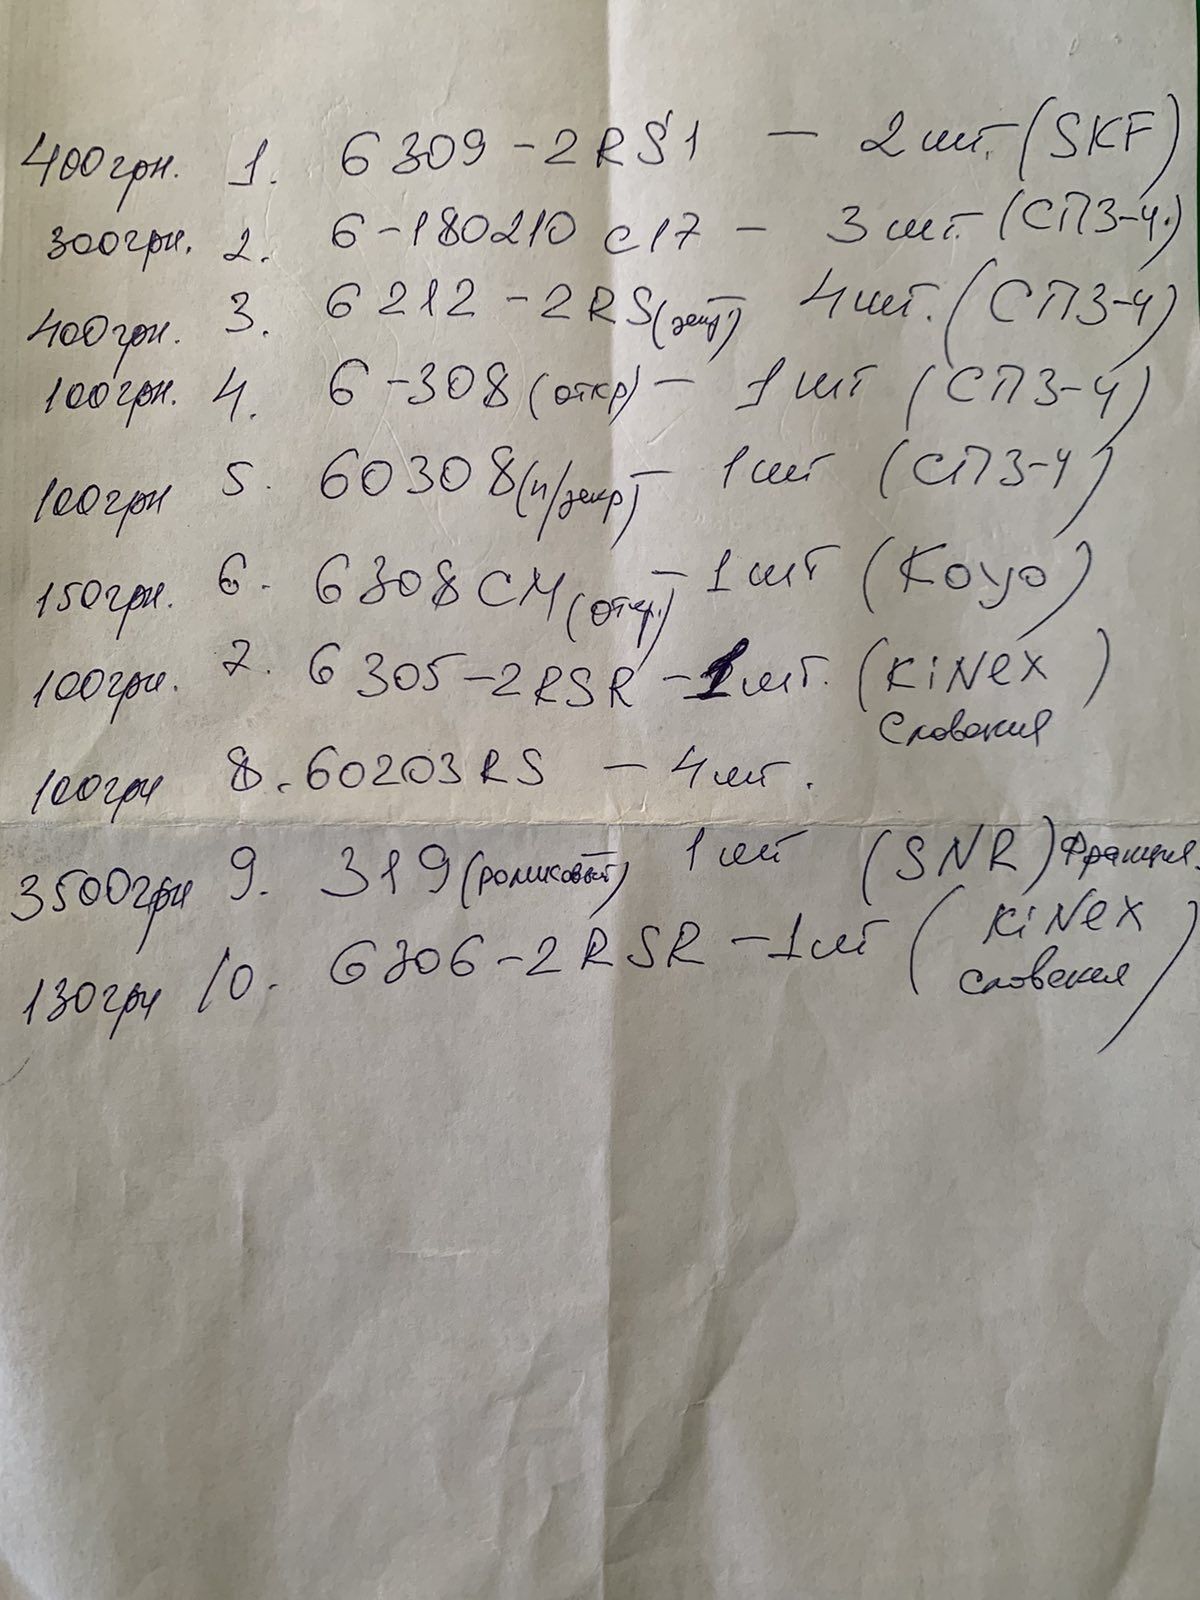 400грн. 1. 6309-2RS1 - 2шт. (SKF)
300грн. 2. 6-180210 с17 - 3шт. (СПЗ-4.)
400грн. 3. 6212-2RS (закр.) 4шт. (СПЗ-4)
100грн. 4. 6-308 (откр) - 1шт (СПЗ-4)
100грн 5. 60308 (п/закр) - 1шт (СПЗ-4)
150грн. 6. 6308CM (откр.) - 1шт (Koyo)
100грн. 7. 6305-2RSR - 1шт. (KiNex
Словакия)
100грн 8. 60203RS - 4шт.
3500грн 9. 319 (роликовый) 1шт (SNR) Франция.
130грн 10. 6306-2RSR - 1шт (KiNex
Словакия)